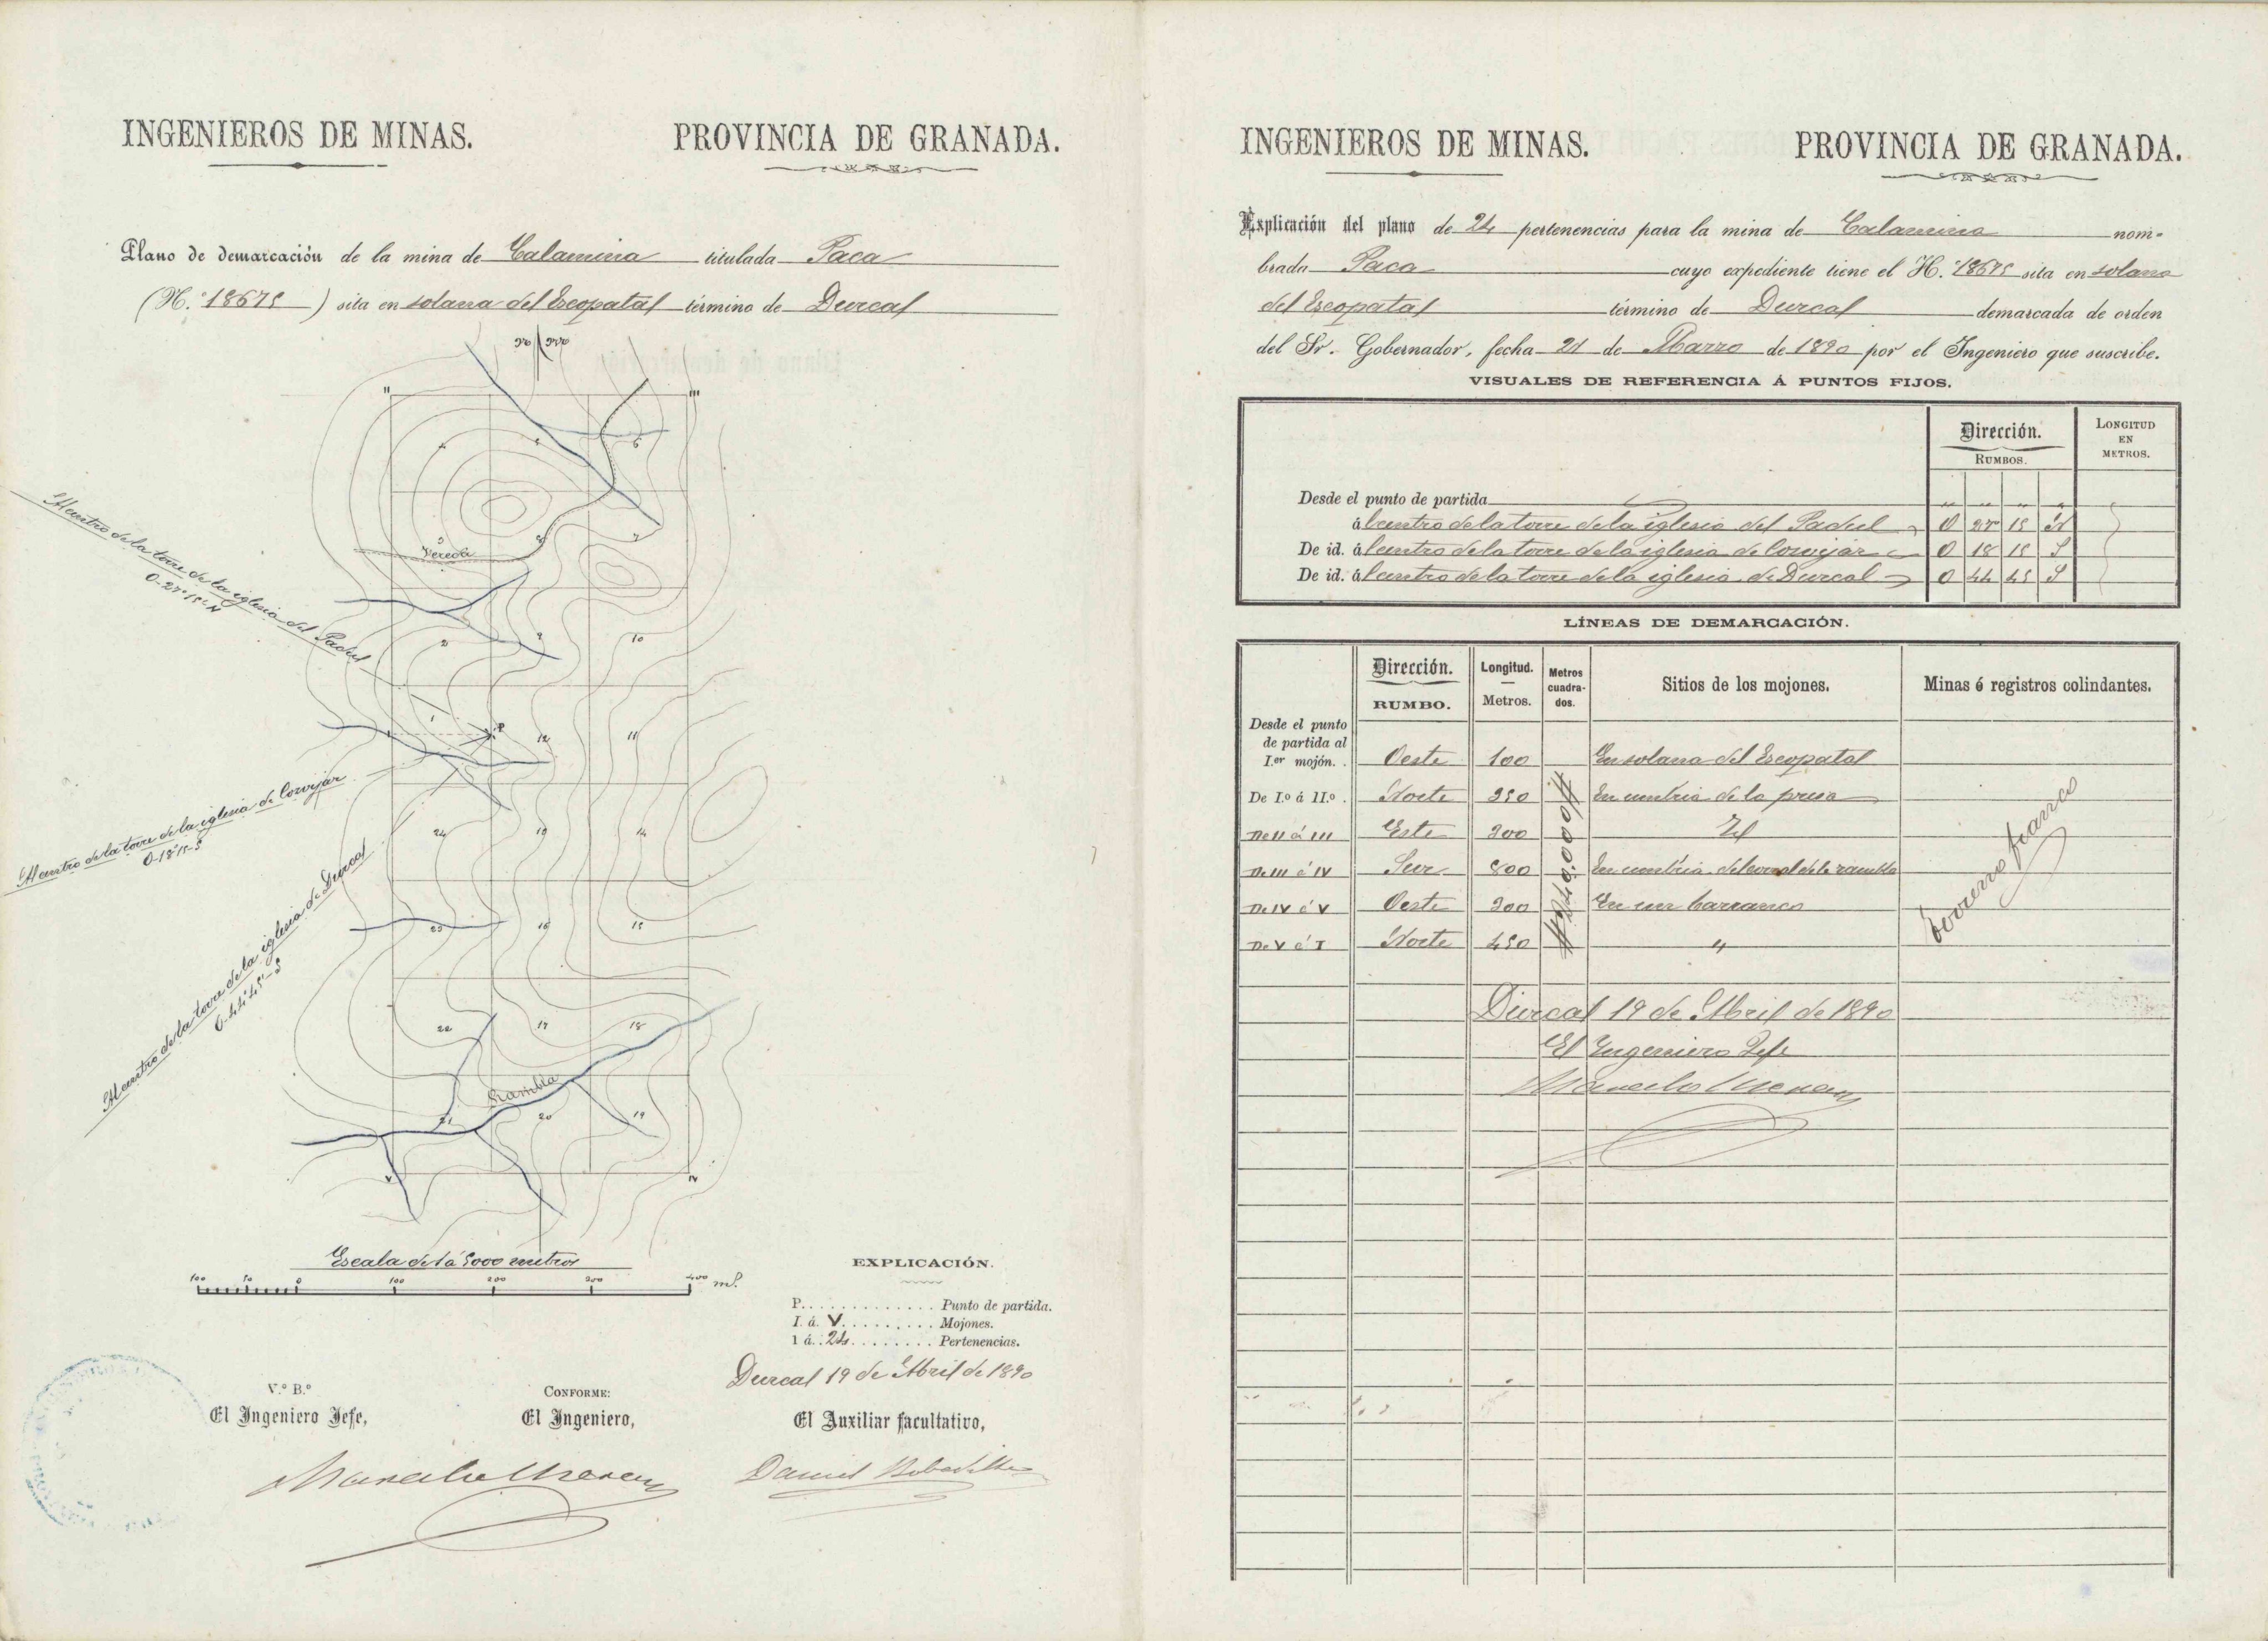 INGENIEROS DE MINAS. PROVINCIA DE GRANADA.
Plano de demarcación de la mina de Calamina titulada Paca
(N.º 18675) sita en solana del Escopatal término de Durcal
II
III
4
5
6
Vereda
3
8
7
2
9
10
Al centro de la torre de la iglesia del Padul
O-27º15'-N
1
P
12
11
Al centro de la torre de la iglesia de Cozvíjar
O-18º15'-S
24
13
14
Al centro de la torre de la iglesia de Durcal
O-44º45'-S
23
16
15
22
17
18
Rambla
21
20
19
V
IV
Escala de 1 á 5000 metros
100 50 0 100 200 300 400 ms.
EXPLICACIÓN.
P. Punto de partida.
I. á. V. Mojones.
1 á. 24. Pertenencias.
Durcal 19 de Abril de 1890
V.º B.º
El Ingeniero Jefe,
CONFORME:
El Ingeniero,
El Auxiliar facultativo,
Daniel
INGENIEROS DE MINAS. PROVINCIA DE GRANADA.
Explicación del plano de 24 pertenencias para la mina de Calamina nom-
brada Paca cuyo expediente tiene el N.º 18675 sita en solana
del Escopatal término de Durcal demarcada de orden
del Sr. Gobernador, fecha 21 de Marzo de 1890 por el Ingeniero que suscribe.
VISUALES DE REFERENCIA Á PUNTOS FIJOS.
Dirección.
RUMBOS.
LONGITUD EN METROS.
Desde el punto de partida
ál centro de la torre de la iglesia del Padul O 27 15 N
De id. ál centro de la torre de la iglesia de Cozvíjar O 18 15 S
De id. ál centro de la torre de la iglesia de Durcal O 44 45 S
LÍNEAS DE DEMARCACIÓN.
Dirección.
RUMBO.
Longitud.
Metros.
Metros cuadrados.
Sitios de los mojones.
Minas é registros colindantes.
Desde el punto
de partida al
I.er mojón. Oeste 100 En solana del Escopatal
De I.º á II.º Norte 350 En umbria de la presa
De II á III Este 300 Id
De III á IV Sur 800 En umbria del corral de la rambla
De IV á V Oeste 300 En un barranco
De V á I Norte 450 "
#240.000#
Terreno franco
Durcal 19 de Abril de 1890
El Ingeniero Jefe